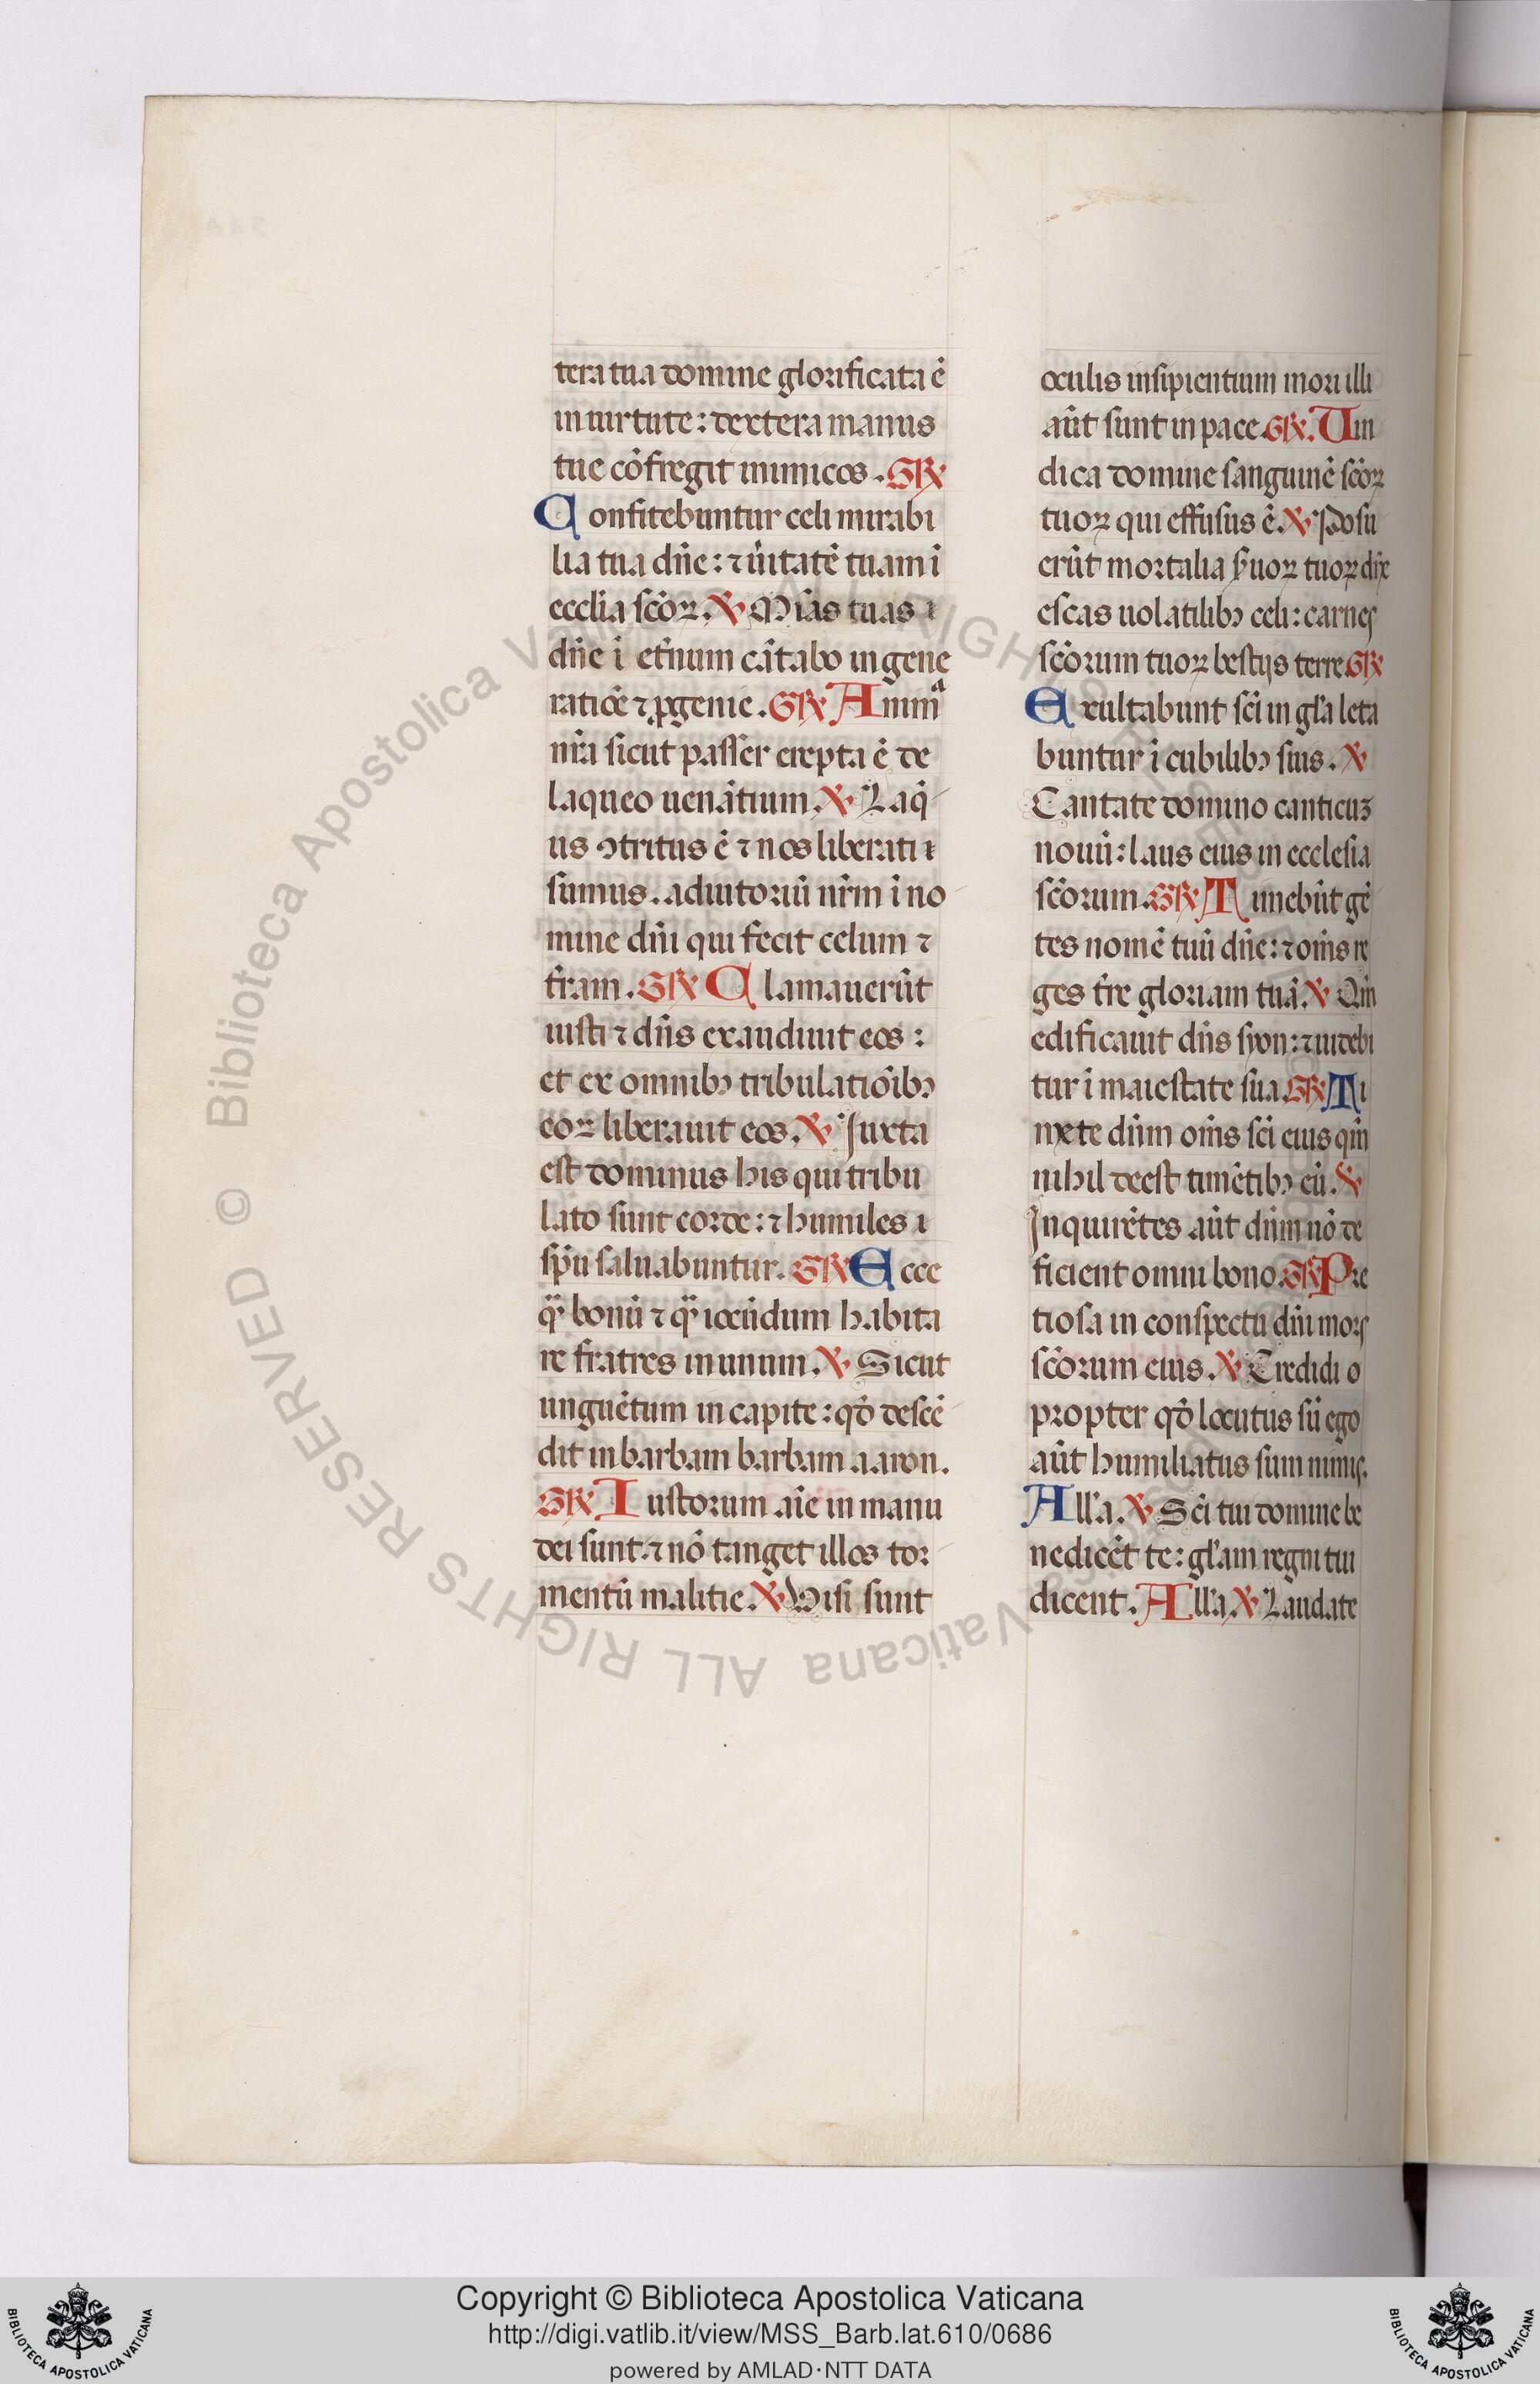 tera tua domine glorificata ē
in uirtute: dextera manus
tue cōfregit inimicos. GR̶
Confitebuntur celi mirabi
lia tua dn̄e: ⁊ ūitatē tuam i
ecclīa scōꝝ. ℣ Mīas tuas ı
dn̄e ī et̄num cātabo in gene
ratiōe ⁊ ꝓgenie. GR̶ Animᵃ
nr̄a sicut passer erepta ē de
laqueo uenātium. ℣ Laq̄
us ↄtritus ē ⁊ nos liberati ı
sumus. adiutoriū nr̄m ī no
mine dn̄i qui fecit celum ⁊
t̄ram. GR̶ Clamauerūt
iusti ⁊ dn̄s exaudiuit eos:
et ex omnibꝫ tribulatiōibꝫ
eoꝝ liberauit eos. ℣ Juxta
est dominus his qui tribu
lato sunt corde: ⁊ humiles ı
sp̄u saluabuntur. GR̶ Ecce
qᷓ bonū ⁊ qᷓ iocūdum habita
re fratres in unum. ℣ Sicut
unguētum in capite: qđ descē
dit in barbam barbam aaron.
GR̶ Iustorum aīe in manu
dei sunt. ⁊ nō tanget illos tor
mentū malitie. ℣ Visi sunt
oculis insipientium mori illi
aūt sunt in pace. GR̶. Uin
dica domine sanguinē scōꝝ
tuoꝝ qui effusus ē. ℣ Posu
erūt mortalia ẜuoꝝ tuoꝝ
escas uolatilibꝫ celi: carnes
scōrum tuoꝝ bestijs terre. GR̶
Exultabunt scī in gl̄a leta
buntur ī cubilibꝫ suis. ℣
Cantate domino canticuꝫ
nouū: laus eius in ecclesia
scōrum. GR̶ Timebūt gē
tes nomē tuū dn̄e: ⁊ om̄s re
ges t̄re gloriam tuā. ℣ Qm̄
edificauit dn̄s syon: ⁊ uidebi
tur ī maiestate sua. GR̶ Ti
mete dn̄m om̄s scī eius qm̄
nihil deest timētibꝫ eū. ℣
Inquirētes aūt dn̄m nō de
ficient omni bono. GR̶ Pre
tiosa in conspectu dn̄i mors
scōrum eius. ℣ Credidi o
propter qđ locutus sū ego
aūt humiliatus sum nimis.
All̄a. ℣ Scī tui domine be
nedicēt te: gl̄am regni tui
dicent. All̄a. ℣ Laudate
© Biblioteca Apostolica Vaticana ALL RIGHTS RESERVED
Copyright © Biblioteca Apostolica Vaticana
http://digi.vatlib.it/view/MSS_Barb.lat.610/0686
powered by AMLAD·NTT DATA
BIBLIOTECA APOSTOLICA VATICANA
BIBLIOTECA APOSTOLICA VATICANA